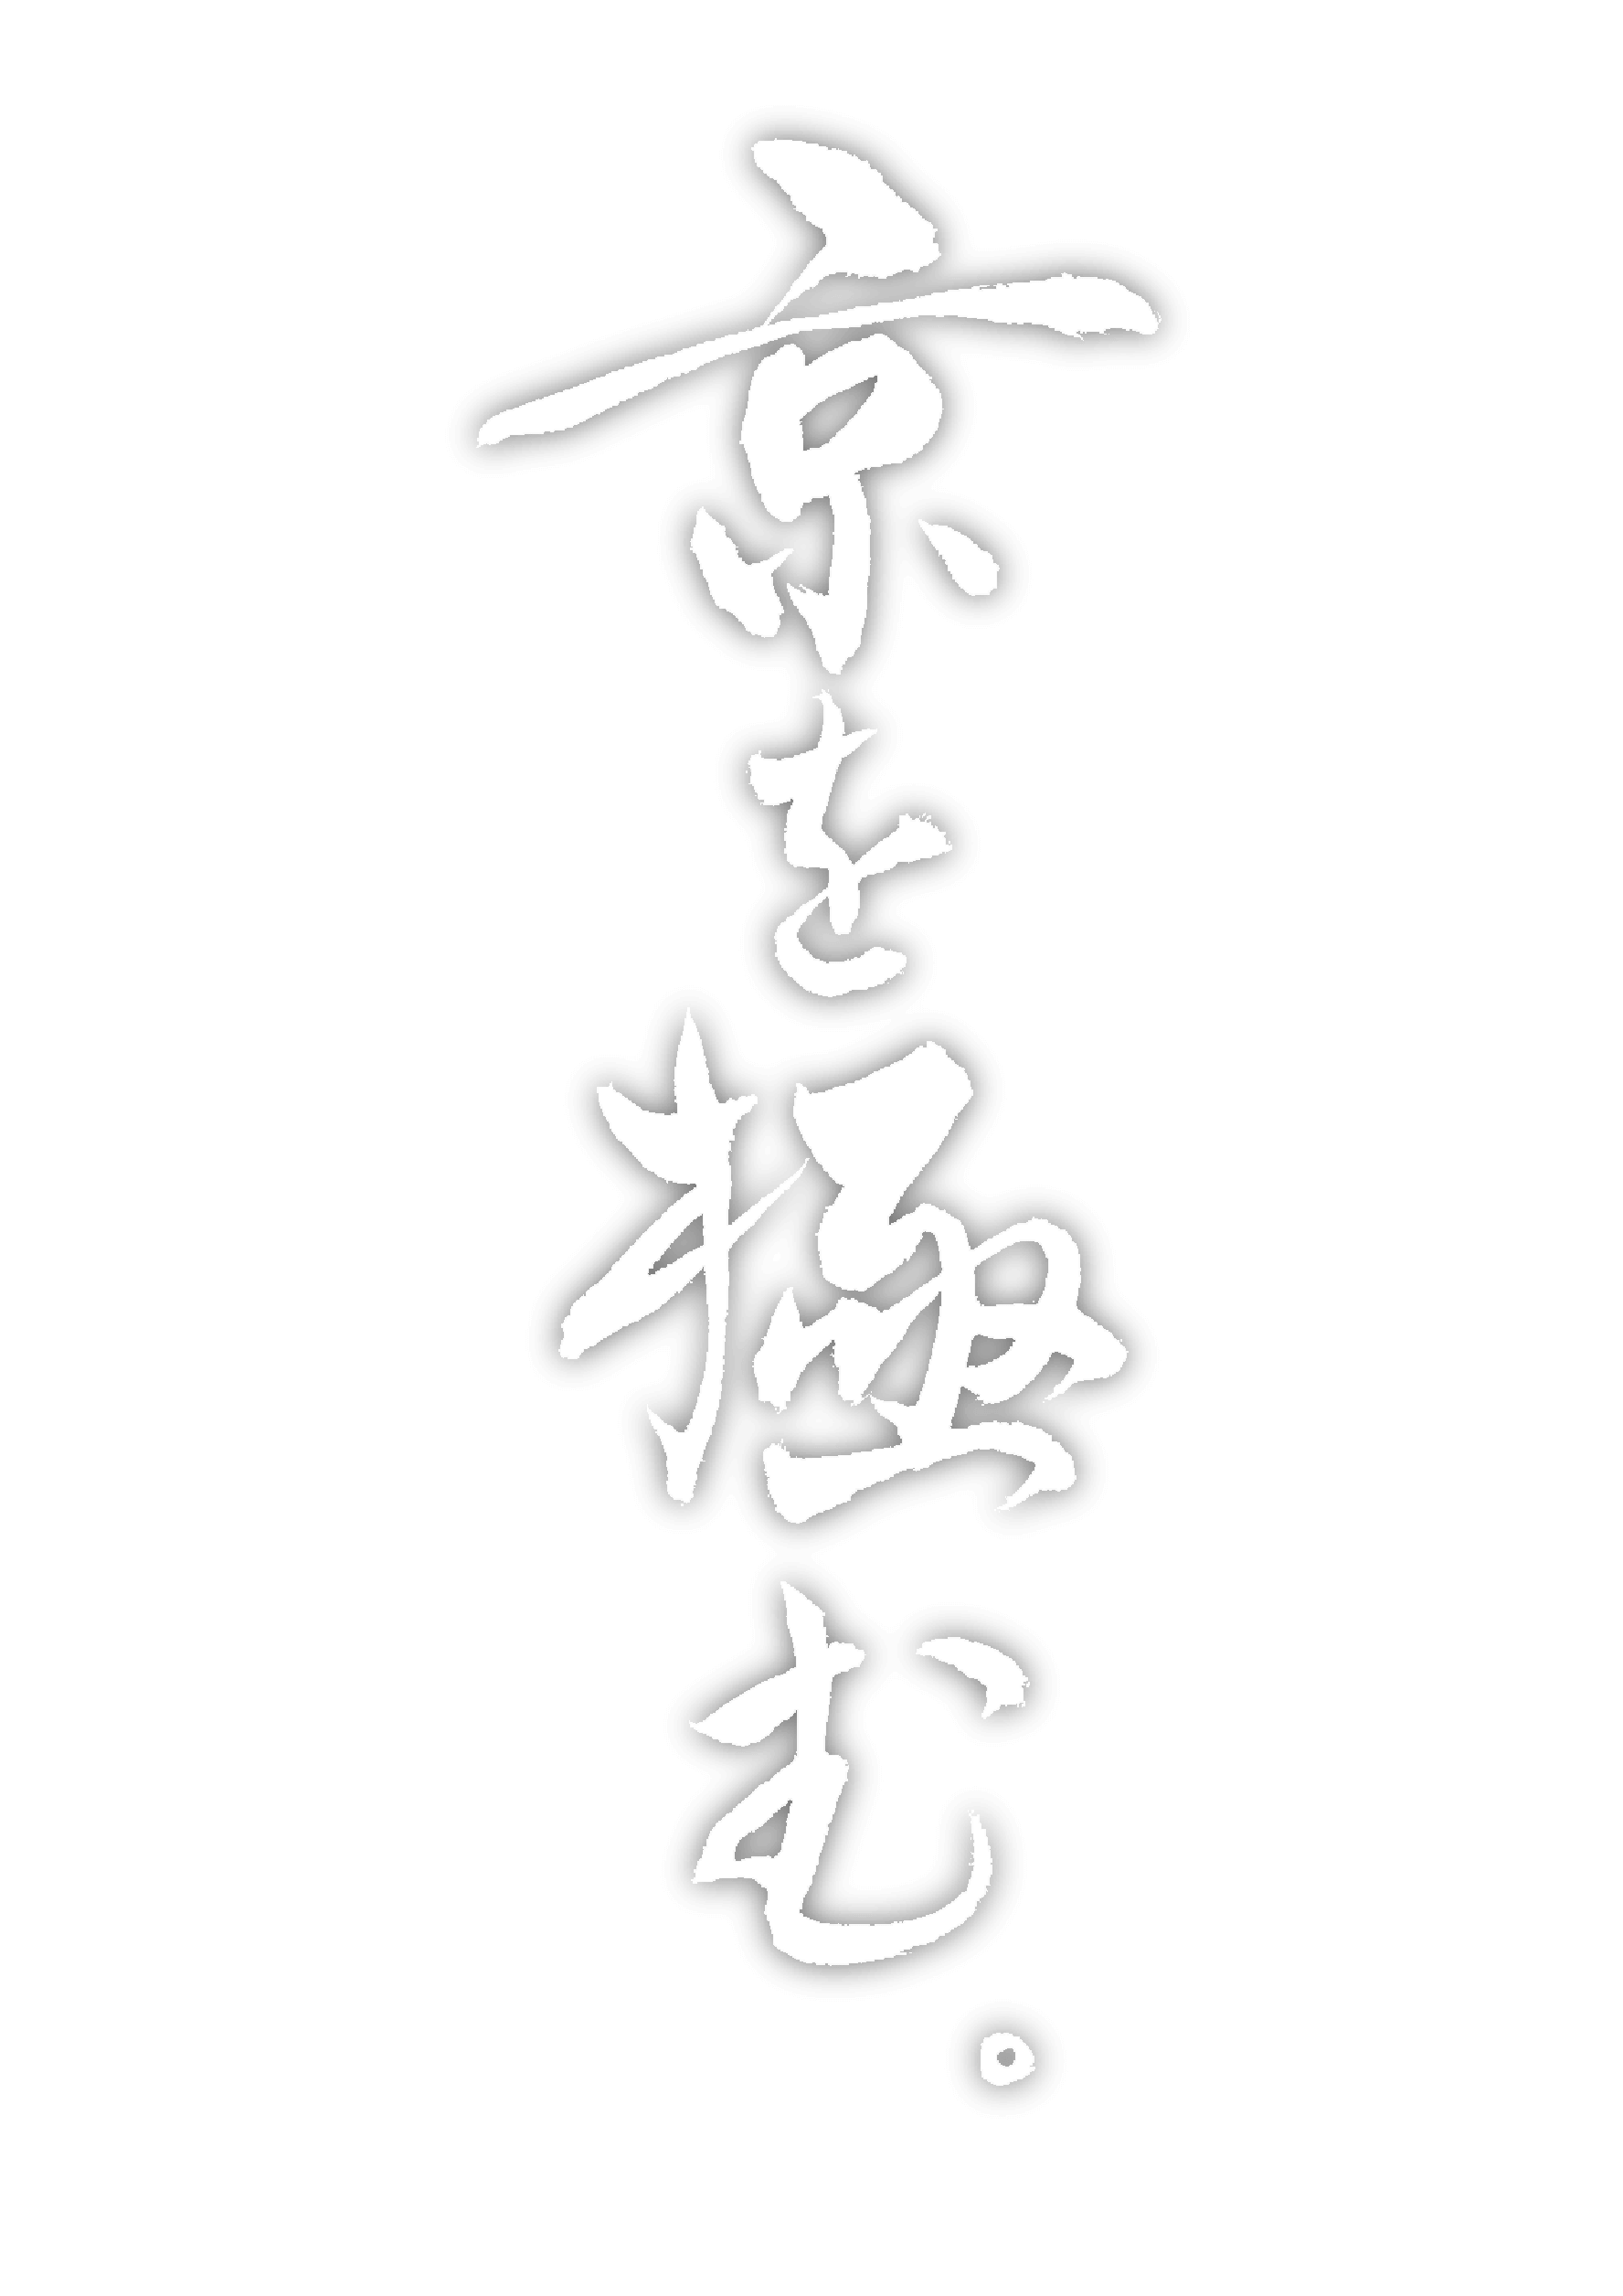 京を極む。